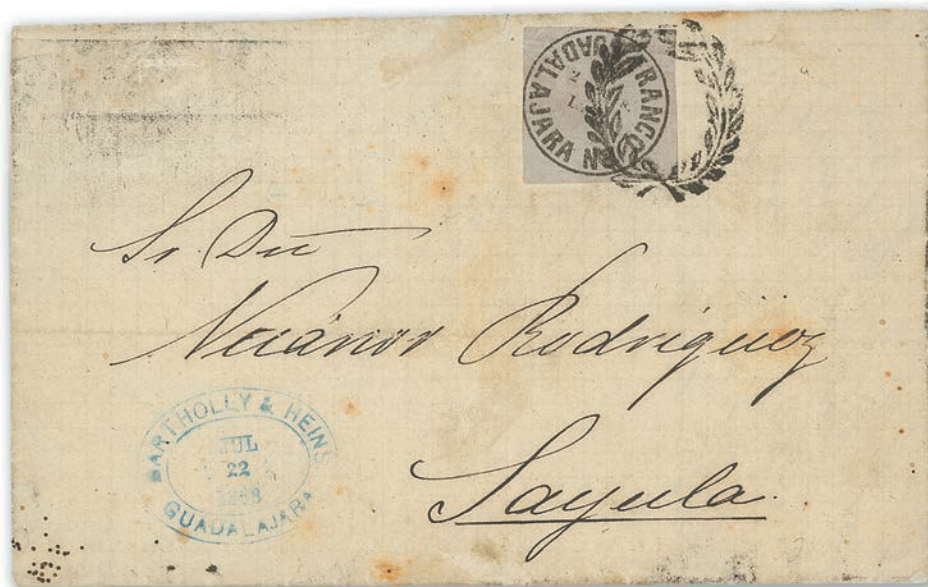 FRANCO
GUADALAJARA
Sr. Dn
Nicánor Rodriguez
Sayula.
BARTHOLLY & HEINS.
JUL
22
1868
GUADALAJARA